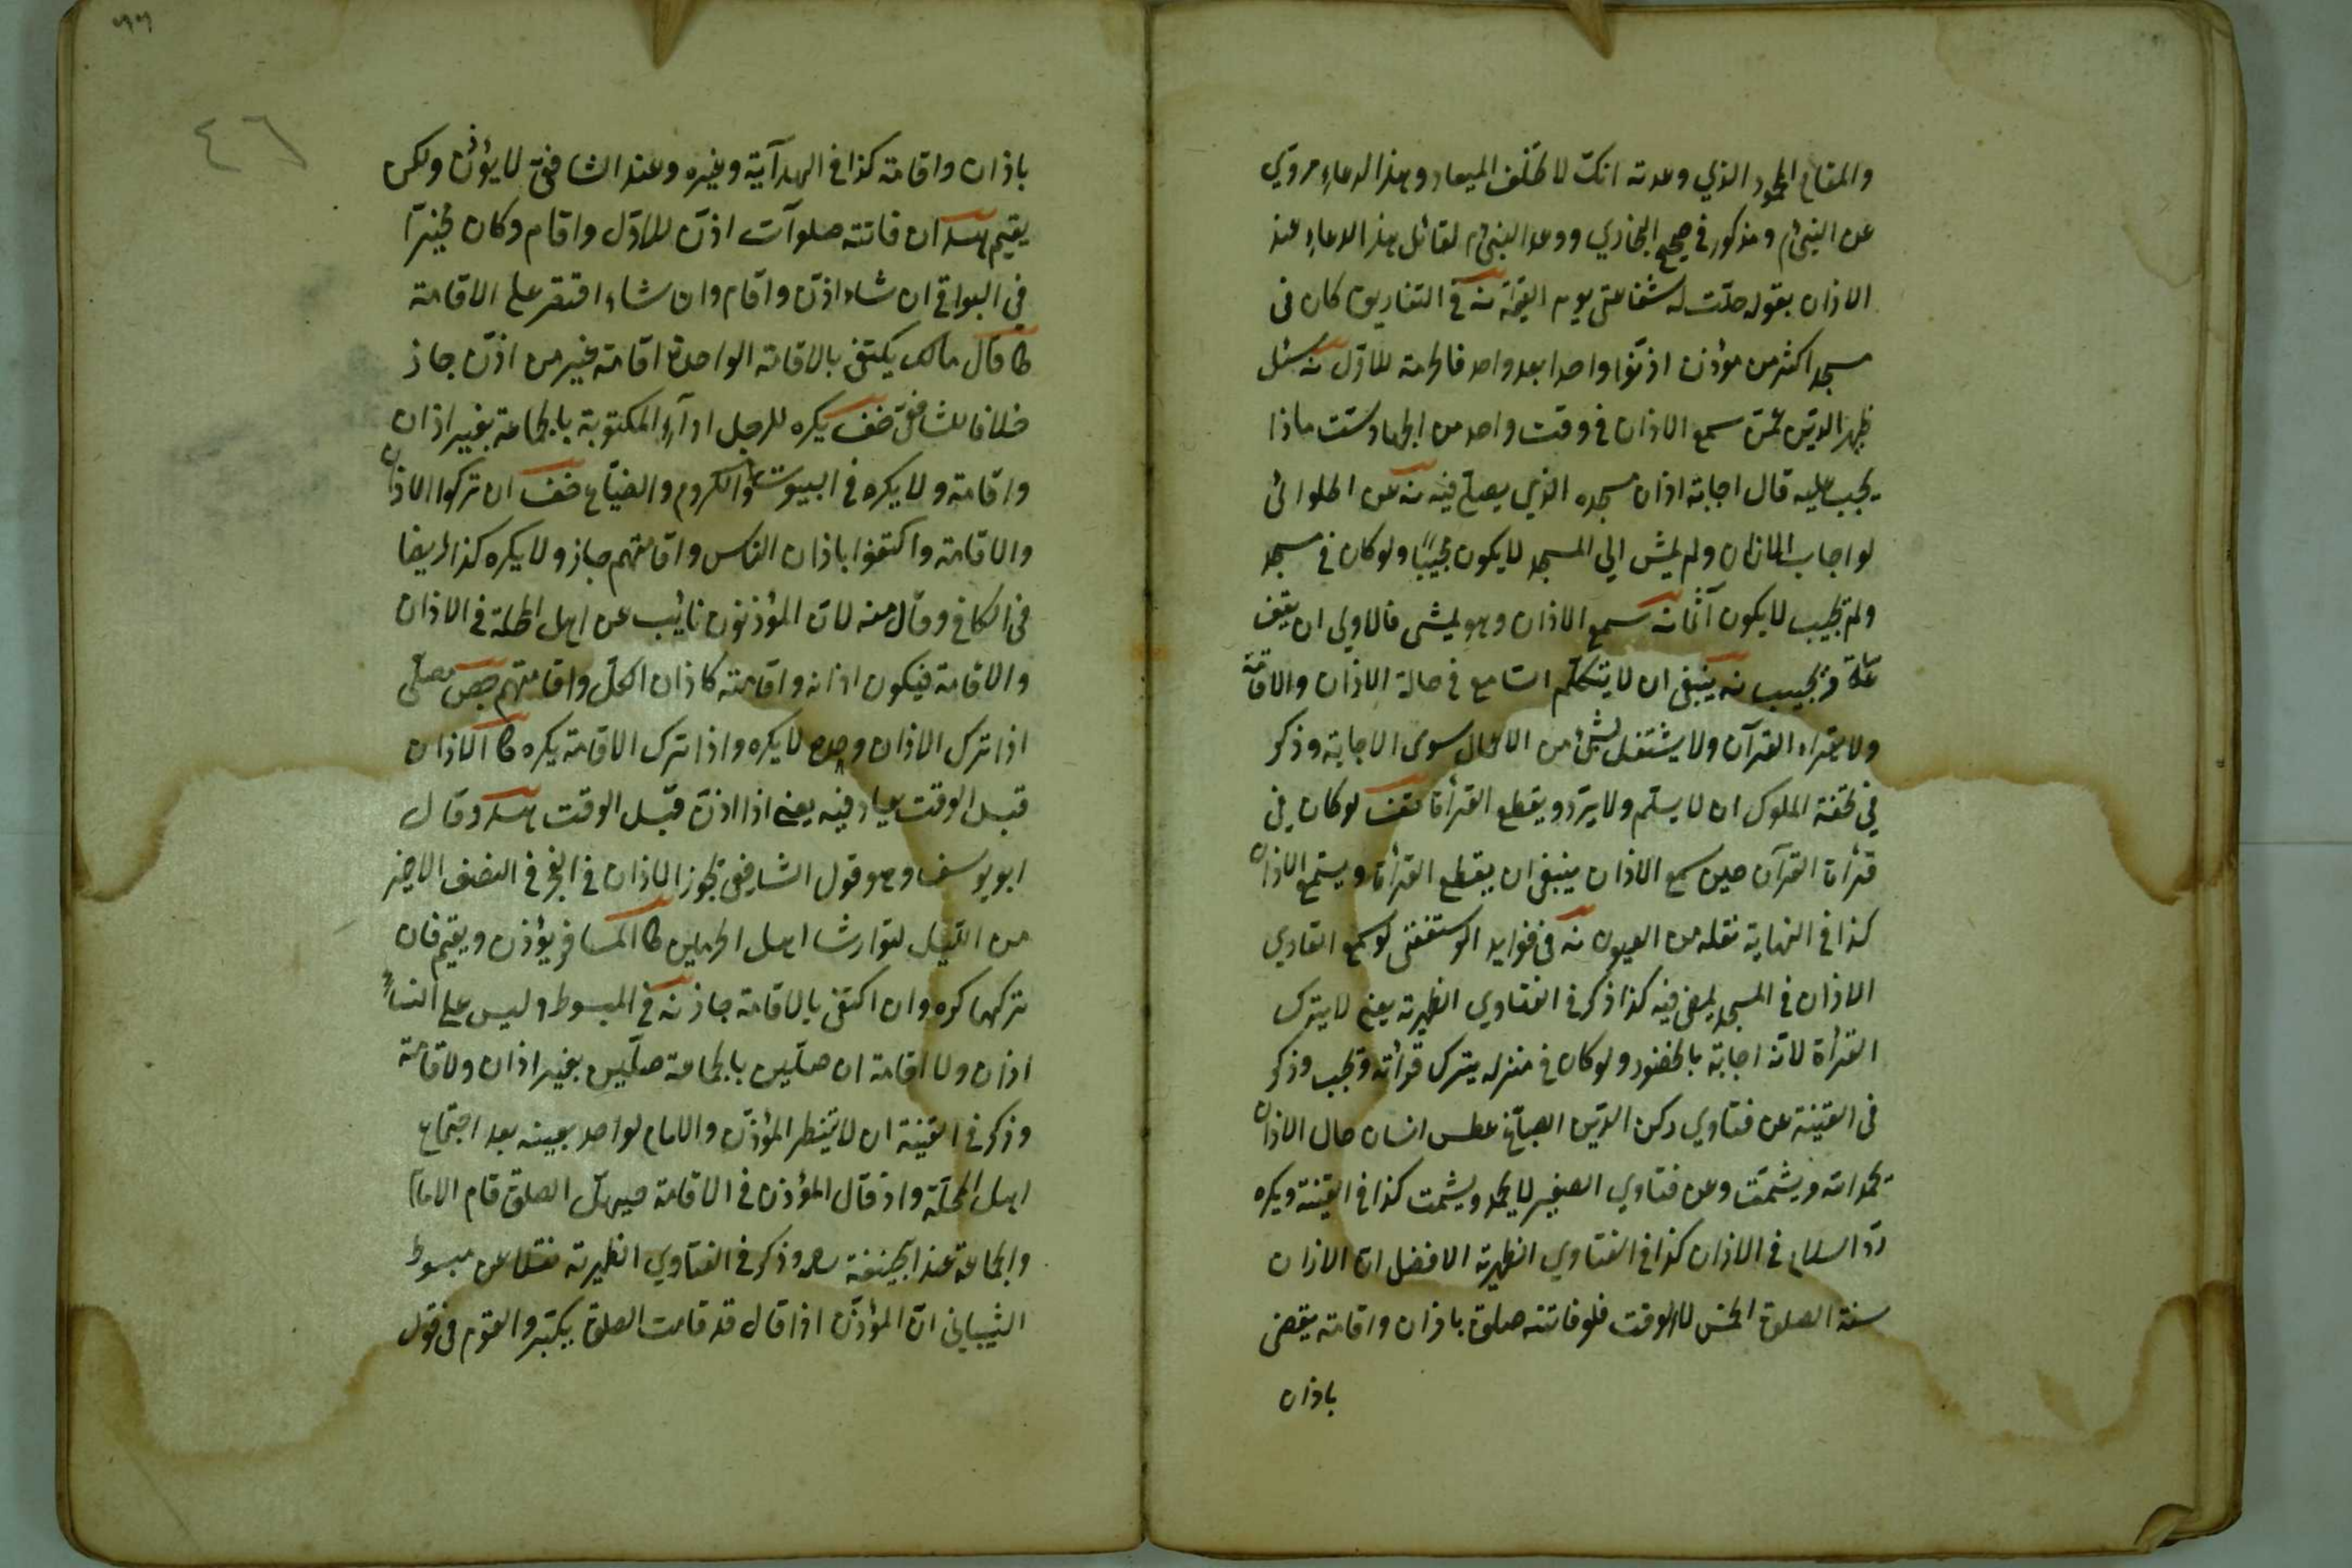 والمقام المحمود الذي وعدته انك لا تخلف الميعاد وهذا الدعاء مروي
عن النبي م ومذكور في صحيح البخاري ووعد النبي م لقائل هذا الدعاء عند
الاذان بقوله حلت له شفاعتي يوم القيمة نه في التفاريق كان في
مسجد اكثر من مؤذن اذنوا واحدا بعد واحد فالحرمة للاول نه سئل
ظهير الدين عمن سمع الاذان في وقت واحد من الجهاد ست ماذا
يجب عليه قال اجابة اذان مسجده الذي يصلي فيه نه عن الحلوائي
لو اجاب باللسان ولم يمش الى المسجد لا يكون مجيبا ولو كان في مسجد
ولم يجيب لا يكون آثما نه سمع الاذان وهو يمشي فالاولى ان يقف
ساعة ويجيب نه ينبغي ان لا يتكلم السامع في حالة الاذان والاقامة
ولا يقراء القرآن ولا يشتغل بشئ من الاعمال سوى الاجابة وذكر
في تحفة الملوك ان لا يسلم ولا يرد ويقطع القرأة لو كان في
قرأة القرآن حين سمع الاذان ينبغي ان يقطع القرأة ويستمع الاذان
كذا في النهاية نقله من العيون نه في فوايد الرستغفني لو سمع القاري
الاذان في المسجد يمضي فيه كذا ذكر في الفتاوي الظهيرية يعني لا يترك
القرأة لانه اجابة بالحضور ولو كان في منزله يترك قرأته ويجب وذكر
في القنية عن فتاوي ركن الدين الصباغي عطس انسان حال الاذان
يحمد الله ويشمت وعن فتاوي الصغير لا يحمد ويشمت كذا في القنية ويكره
رد السلام في الاذان كذا في الفتاوي الظهيرية الافضل ان الاذان
سنة الصلوة الخمس لا الوقت فلو فاتته صلوة باذان واقامة يقضى
باذان
٤٦
باذان واقامة كذا في الهدآية وغيره وعند الشافعي لا يؤذن ولكن
يقيم هد ان فاتته صلوآت اذن للاول واقام وكان مخيرا
في البواقي ان شاء اذن واقام وان شاء اقتصر على الاقامة
كا قال مالك يكتفى بالاقامة الواحدة اقامة غير من اذن جاز
خلافا للشافعي خف يكره للرجل ادآء المكتوبة بالجماعة بغير اذان
واقامة ولا يكره في البيوت والكروم والضياع خف ان تركوا الاذان
والاقامة واكتفوا باذان الناس واقامتهم جاز ولا يكره كذا ايضا
في الكافي وقال منه لان المؤذنون نائب عن اهل المحلة في الاذان
والاقامة فيكون اذانه واقامته كاذان الكل واقامتهم جص مصلي
اذا ترك الاذان وحده لا يكره واذا ترك الاقامة يكره كا الاذان
قبل الوقت يعاد فيه يعني اذا اذن قبل الوقت هد وقال
ابو يوسف وهو قول الشافعي يجوز الاذان في الفجر في النصف الاخير
من الليل لتوارث اهل الحرمين كا المسافر يؤذن ويقيم فان
تركهما كره وان اكتفى بالاقامة جاز نه في المبسوط وليس على النساء
اذان ولا اقامة ان صلين بالجماعة صلين بغير اذان ولا اقامة
وذكر في القنية ان لا ينتظر المؤذن والامام لواحد بعينه بعد اجتماع
اهل المحلة واذ قال المؤذن في الاقامة حي على الصلوة قام الامام
والجماعة عند ابي حنيفة رحمه وذكر في الفتاوي الظهيرية نقلا عن مبسوط
الشيباني ان المؤذن اذا قال قد قامت الصلوة يكبر والقوم في قول